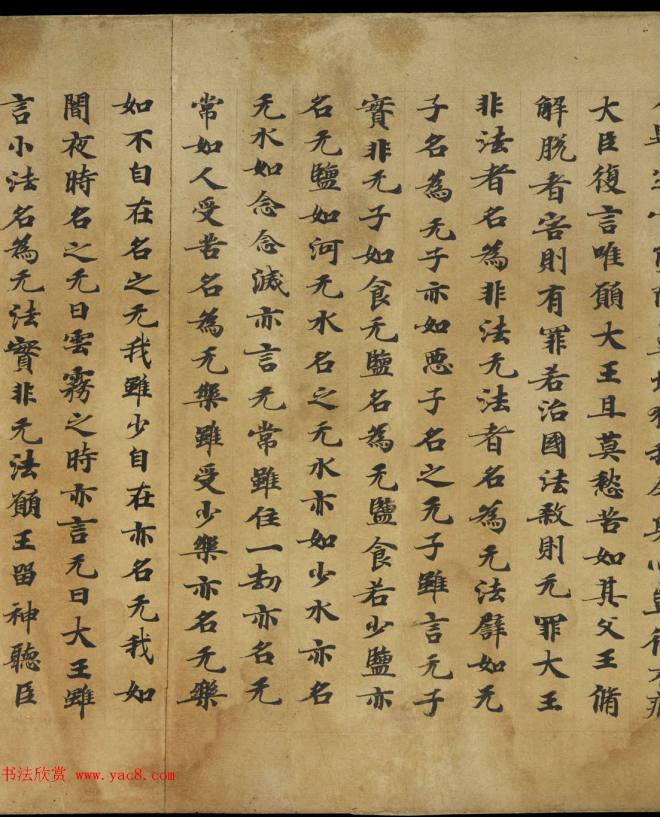 大臣復言唯願大王且莫愁苦如其父王脩
解脫者害則有罪若治國法煞則无罪大王
非法者名為非法无法者名為无法譬如无
子名為无子亦如惡子名之无子雖言无子
實非无子如食无鹽名為无鹽食若少鹽亦
名无鹽如河无水名之无水亦如少水亦名
无水如念念滅亦言无常雖住一劫亦名无
常如人受苦名為无樂雖受少樂亦名无樂
如不自在名之无我雖少自在亦名无我如
闇夜時名之无日雲霧之時亦言无日大王雖
言小法名為无法實非无法願王留神聽臣
书法欣赏 www.yac8.com